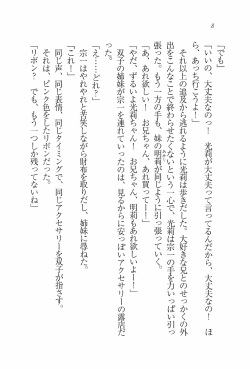 8
「でも」
「いいの、大丈夫なの！　光莉が大丈夫って言ってるんだから、大丈夫なの！　ほ
ら、あっち行こうよ！」
それ以上の追及から逃れるように光莉は歩きだした。大好きな兄とのせっかくの外
出をこんなことで終わらせたくないという一心で、光莉は宗一の手を力いっぱい引っ
張った。もう一方の手も、妹の明莉に同じように引っ張っていく。
「あ、あれ欲しい！　お兄ちゃん、あれ買って！」
「やだ、ずるいよ光莉ちゃん！　お兄ちゃん、明莉もあれ欲しいよー！」
双子の姉妹が宗一を連れていったのは、見るからに安っぽいアクセサリーの露店だ
った。
「え……どれ？」
宗一はやれやれと苦笑しながら財布を取りだし、姉妹に尋ねた。
「これ！」
同じ声、同じ表情、同じタイミングで、同じアクセサリーを双子が指さす。
それは、ピンク色をしたリボンだった。
「リボン？　でも、もう一つしか残ってないね」